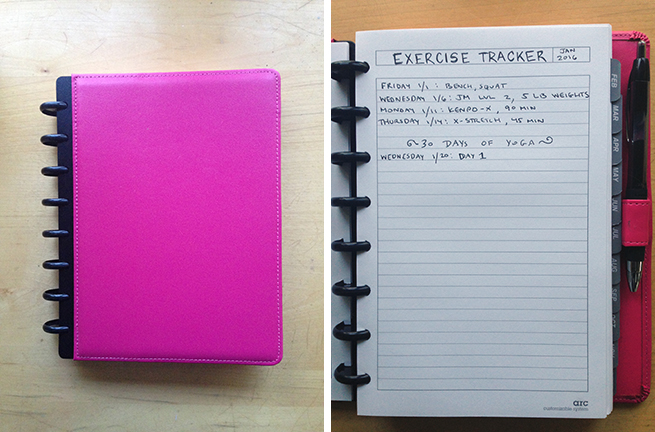 EXERCISE TRACKER
JAN
2016
FRIDAY 1/1: BENCH, SQUAT
WEDNESDAY 1/6: JM LVL 2, 5 LB WEIGHTS
MONDAY 1/11: KENPO-X, 90 MIN
THURSDAY 1/14: X-STRETCH, 45 MIN
30 DAYS OF YOGA
WEDNESDAY 1/20: DAY 1
FEB
MAR
APR
MAY
JUN
JUL
AUG
SEP
OCT
arc
customization system